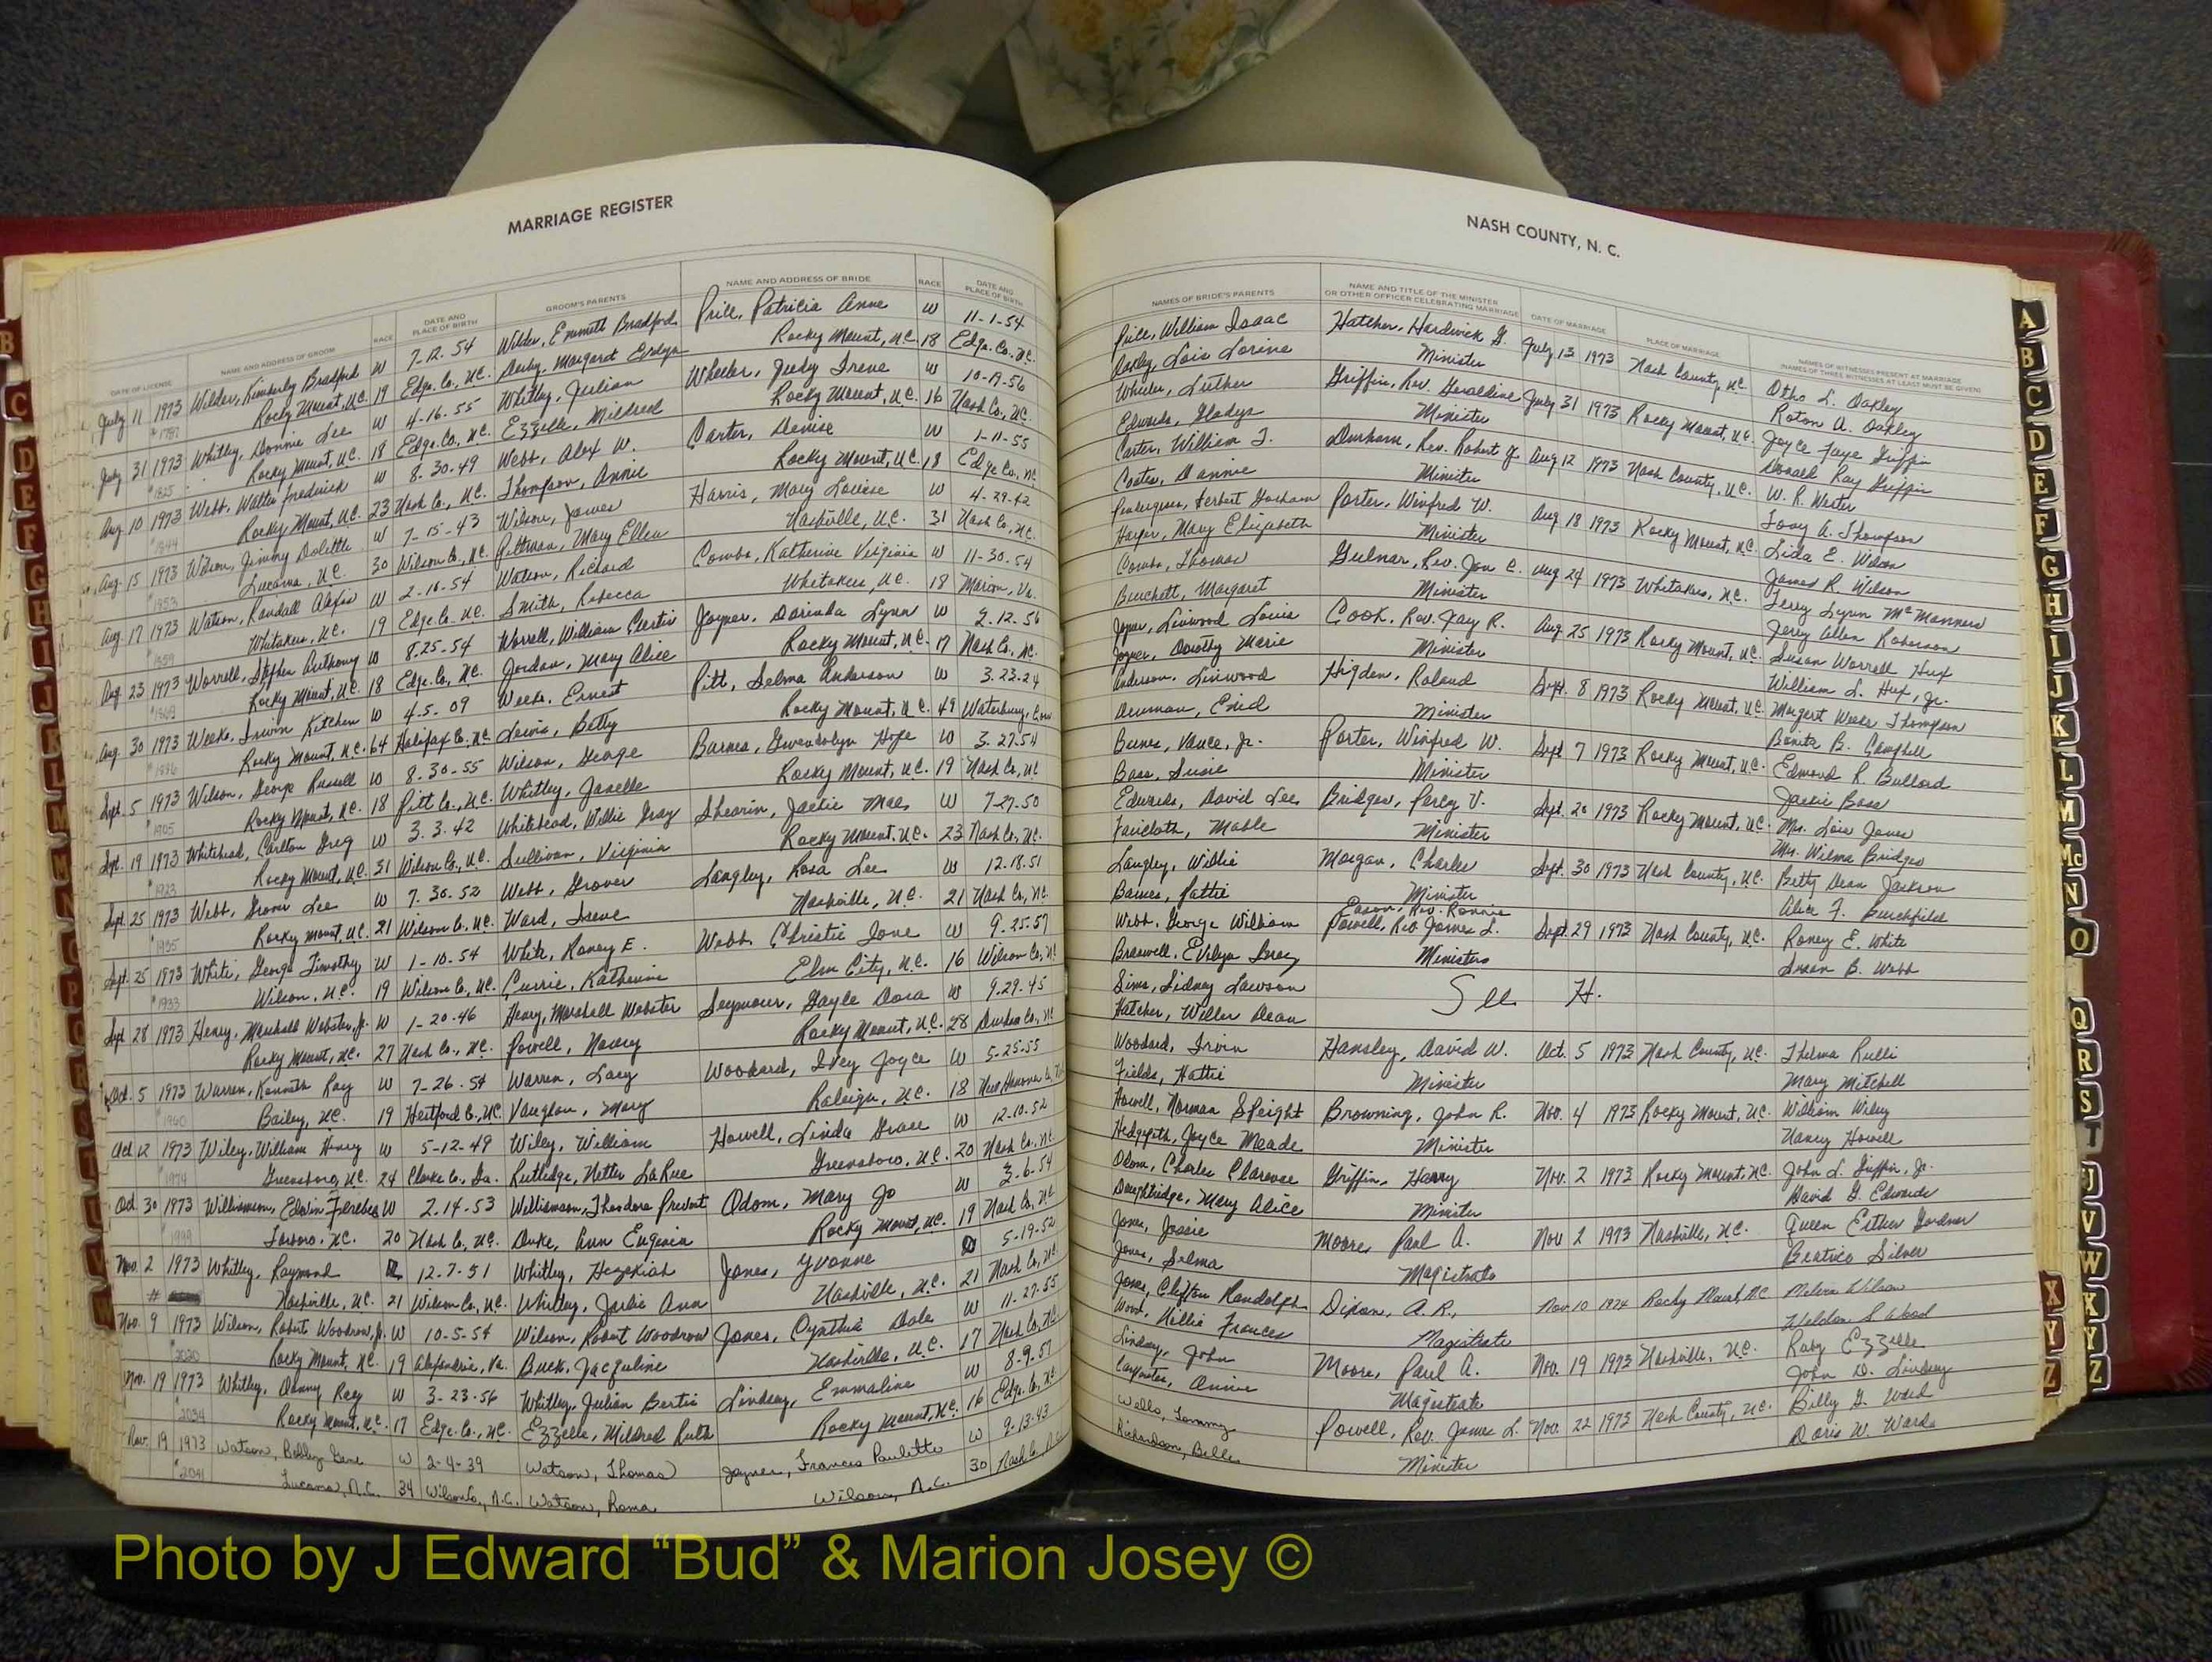 MARRIAGE REGISTER
DATE OF LICENSE NAME AND ADDRESS OF GROOM RACE DATE AND PLACE OF BIRTH GROOM'S PARENTS NAME AND ADDRESS OF BRIDE RACE DATE AND PLACE OF BIRTH
July 11 1973 Wilder, Kimberly Bradford W 7-12-54 Wilder, Emmett Bradford Price, Patricia Anne W 11-1-54
Rocky Mount, N.C. 19 Edge. Co., N.C. Margaret Evelyn Rocky Mount, N.C. 18 Edge. Co., N.C.
July 31 1973 Whitley, Donnie Lee W 4-16-55 Whitley, Julian Wheeler, Judy Irene W 10-19-56
Rocky Mount, N.C. 18 Edge. Co., N.C. Ezzelle, Mildred Rocky Mount, N.C. 16 Nash Co., N.C.
Aug 10 1973 Webb, Walter Fredrick W 8-30-49 Webb, Alex W. Carter, Denise W 1-11-55
Rocky Mount, N.C. 23 Nash Co., N.C. Thompson, Annie Rocky Mount, N.C. 18 Edge Co., N.C.
Aug. 15 1973 Wilson, Jimmy Dolittle W 7-15-43 Wilson, James Harris, Mary Louise W 4-29-42
Lucama, N.C. 30 Wilson Co., N.C. Pittman, Mary Ellen Nashville, N.C. 31 Nash Co., N.C.
Aug. 17 1973 Watson, Randall W 2-16-54 Watson, Richard Combs, Katherine Virginia W 11-30-54
Whitakers, N.C. 19 Edge Co. N.C. Smith, Rebecca Whitakers, N.C. 18 Marion, Va.
Aug 23 1973 Worrell, Stephen Anthony W 8-25-54 Worrell, William Curtis Joyner, Dorinda Lynn W 2-12-56
Rocky Mount, N.C. 18 Edge. Co., N.C. Jordan, Mary Alice Rocky Mount, N.C. 17 Nash Co., N.C.
Aug. 30 1973 Weeks, Irwin Kitchen W 4-5-09 Weeks, Ernest Pitt, Selma Anderson W 3-23-24
Rocky Mount, N.C. 64 Halifax Co., N.C. Lewis, Betty Rocky Mount, N.C. 49 Waterbury, Conn
Sept. 5 1973 Wilson, George Russell W 8-30-55 Wilson, George Barnes, Gwendolyn Hope W 3-27-54
Rocky Mount, N.C. 18 Pitt Co., N.C. Whitley, Janelle Rocky Mount, N.C. 19 Nash Co., N.C.
Sept. 19 1973 Whitehead, Carlton Greg W 3-3-42 Whitehead, Willie Gray Shearin, Jackie Mae W 7-27-50
Rocky Mount, N.C. 31 Wilson Co., N.C. Sullivan, Virginia Rocky Mount, N.C. 23 Nash Co., N.C.
Sept 25 1973 Webb, Grover Lee W 7-30-52 Webb, Grover Langley, Rosa Lee W 12-18-51
Rocky Mount, N.C. 21 Wilson Co., N.C. Ward, Irene Nashville, N.C. 21 Nash Co., N.C.
Sept. 25 1973 White, George Timothy W 1-10-54 White, Roney E. Webb, Christie Jone W 9-25-57
Wilson, N.C. 19 Wilson Co., N.C. Currie, Katherine Elm City, N.C. 16 Wilson Co., N.C.
Sept 28 1973 Henry, Marshall Webster, Jr. W 1-20-46 Henry, Marshall Webster Seymour, Gayle Dora W 9-29-45
Rocky Mount, N.C. 27 Nash Co., N.C. Powell, Nancy Rocky Mount, N.C. 28 Durham Co., N.C.
Oct. 5 1973 Warren, Kenneth Ray W 7-26-54 Warren, Lacy Woodard, Ivey Joyce W 5-25-55
Bailey, N.C. 19 Hertford Co., N.C. Vaughan, Mary Raleigh, N.C. 18 New Hanover Co.
Oct 12 1973 Wiley, William Henry W 5-12-49 Wiley, William Howell, Linda Grace W 12-10-52
Greensboro, N.C. 24 Clarke Co., Ga. Rutledge, Nettie LaRue Greensboro, N.C. 20 Nash Co., N.C.
Oct. 30 1973 Williamson, Edwin Ferebee W 2-14-53 Williamson, Theodore Prevost Odom, Mary Jo W 3-6-54
Tarboro, N.C. 20 Nash Co., N.C. Duke, Ann Eugenia Rocky Mount, N.C. 19 Nash Co., N.C.
Nov. 2 1973 Whitley, Raymond 12-7-51 Whitley, Hezekiah Jones, Yvonne 5-19-52
Nashville, N.C. 21 Wilson Co., N.C. Whitley, Jarlie Ann Nashville, N.C. 21 Nash Co., N.C.
Nov. 9 1973 Wilson, Robert Woodrow, Jr. W 10-5-54 Wilson, Robert Woodrow Jones, Cynthia Dale W 11-27-55
Rocky Mount, N.C. 19 Alexandria, Va. Buck, Jacquline Nashville, N.C. 17 Nash Co., N.C.
Nov. 19 1973 Whitley, Danny Ray W 3-23-56 Whitley, Julian Bertis Lindsey, Emmaline W 8-9-57
Rocky Mount, N.C. 17 Edge. Co., N.C. Ezzelle, Mildred Ruth Rocky Mount, N.C. 16 Edge. Co., N.C.
Nov. 19 1973 Watson, Bobby Gene W 2-4-39 Watson, Thomas Joyner, Francis Paulette W 9-13-43
Lucama, N.C. 34 Wilson Co., N.C. Watson, Roma Wilson, N.C. 30 Nash Co., N.C.
NASH COUNTY, N. C.
NAMES OF BRIDE'S PARENTS NAME AND TITLE OF THE MINISTER OR OTHER OFFICER CELEBRATING MARRIAGE DATE OF MARRIAGE PLACE OF MARRIAGE NAMES OF WITNESSES PRESENT AT MARRIAGE (NAMES OF THREE WITNESSES AT LEAST MUST BE GIVEN)
Price, William Isaac Hatcher, Hardwick G. July 13 1973 Nash County, N.C. Otho L. Oakley
Oakley, Lois Lorine Minister Roton A. Oakley
Wheeler, Luther Griffin, Rev. Geraldine July 31 1973 Rocky Mount, N.C. Joyce Faye Griffin
Edwards, Gladys Minister Donald Ray Griffin
Carter, William T. Durham, Rev. Robert J. Aug 12 1973 Nash County, N.C. W. R. Wester
Coates, Dannie Minister Tony A. Thompson
Pendergrass, Herbert Gorham Porter, Winfred W. Aug 18 1973 Rocky Mount, N.C. Lida E. Wilson
Harper, Mary Elizabeth Minister James R. Wilson
Combs, Thomas Gulnar, Rev. Jon C. Aug 24 1973 Whitakers, N.C. Terry Lynn McManners
Burchett, Margaret Minister Jerry Allen Roberson
Joyner, Linwood Louis Cook, Rev. Jay R. Aug 25 1973 Rocky Mount, N.C. Susan Worrell Hux
Joyner, Dorothy Marie Minister William L. Hux, Jr.
Anderson, Linwood Higden, Roland Sept. 8 1973 Rocky Mount, N.C. Margert Weeks Thompson
Denman, Enid Minister Bonita B. Campbell
Barnes, Vance, Jr. Porter, Winfred W. Sept 7 1973 Rocky Mount, N.C. Edmond R. Bullard
Bass, Susie Minister Jackie Bass
Edwards, David Lee Bridges, Percy V. Sept. 20 1973 Rocky Mount, N.C. Mrs. Lois Jones
Faircloth, Mable Minister Mrs. Wilma Bridges
Langley, Willie Morgan, Charles Sept. 30 1973 Nash County, N.C. Betty Dean Jackson
Barnes, Pattie Minister Alice F. Burchfield
Eason, Rev. Ronnie
Webb, George William Powell, Rev. James L. Sept. 29 1973 Nash County, N.C. Roney E. White
Braswell, Evelyn Gray Ministers Susan B. Webb
Sims, Sidney Lawson See H.
Hatcher, Willer Dean
Woodard, Irvin Hansley, David W. Oct. 5 1973 Nash County, N.C. Thelma Rulli
Fields, Hattie Minister Mary Mitchell
Howell, Norman Speight Browning, John R. Nov. 4 1973 Rocky Mount, N.C. William Wiley
Hedgepeth, Joyce Meade Minister Nancy Howell
Odom, Charles Clarence Griffin, Harry Nov. 2 1973 Rocky Mount, N.C. John L. Griffin, Jr.
Daughtridge, Mary Alice Minister David G. Edwards
Jones, Jossie Moore, Paul A. Nov 2 1973 Nashville, N.C. Queen Esther Gardner
Jones, Selma Magistrate Beatrice Silver
Jones, Clifton Randolph Dixon, A. R., Nov 10 1974 Rocky Mount, N.C. Melvin Wilson
Wood, Willie Frances Magistrate Weldon S. Wood
Lindsey, John Moore, Paul A. Nov. 19 1973 Nashville, N.C. Ruby Ezzelle
Carpenter, Annie Magistrate John D. Lindsey
Wells, Tommy Powell, Rev. James L. Nov. 22 1973 Nash County, N.C. Billy G. Ward
Richardson, Belle Minister Doris W. Ward
B
C
D
E
F
G
H
I
J
A
B
C
D
E
F
G
H
I
J
K
L
M
Mc
N
O
Q
R
S
T
U
V
W
X
Y
Z
Photo by J Edward “Bud” & Marion Josey ©